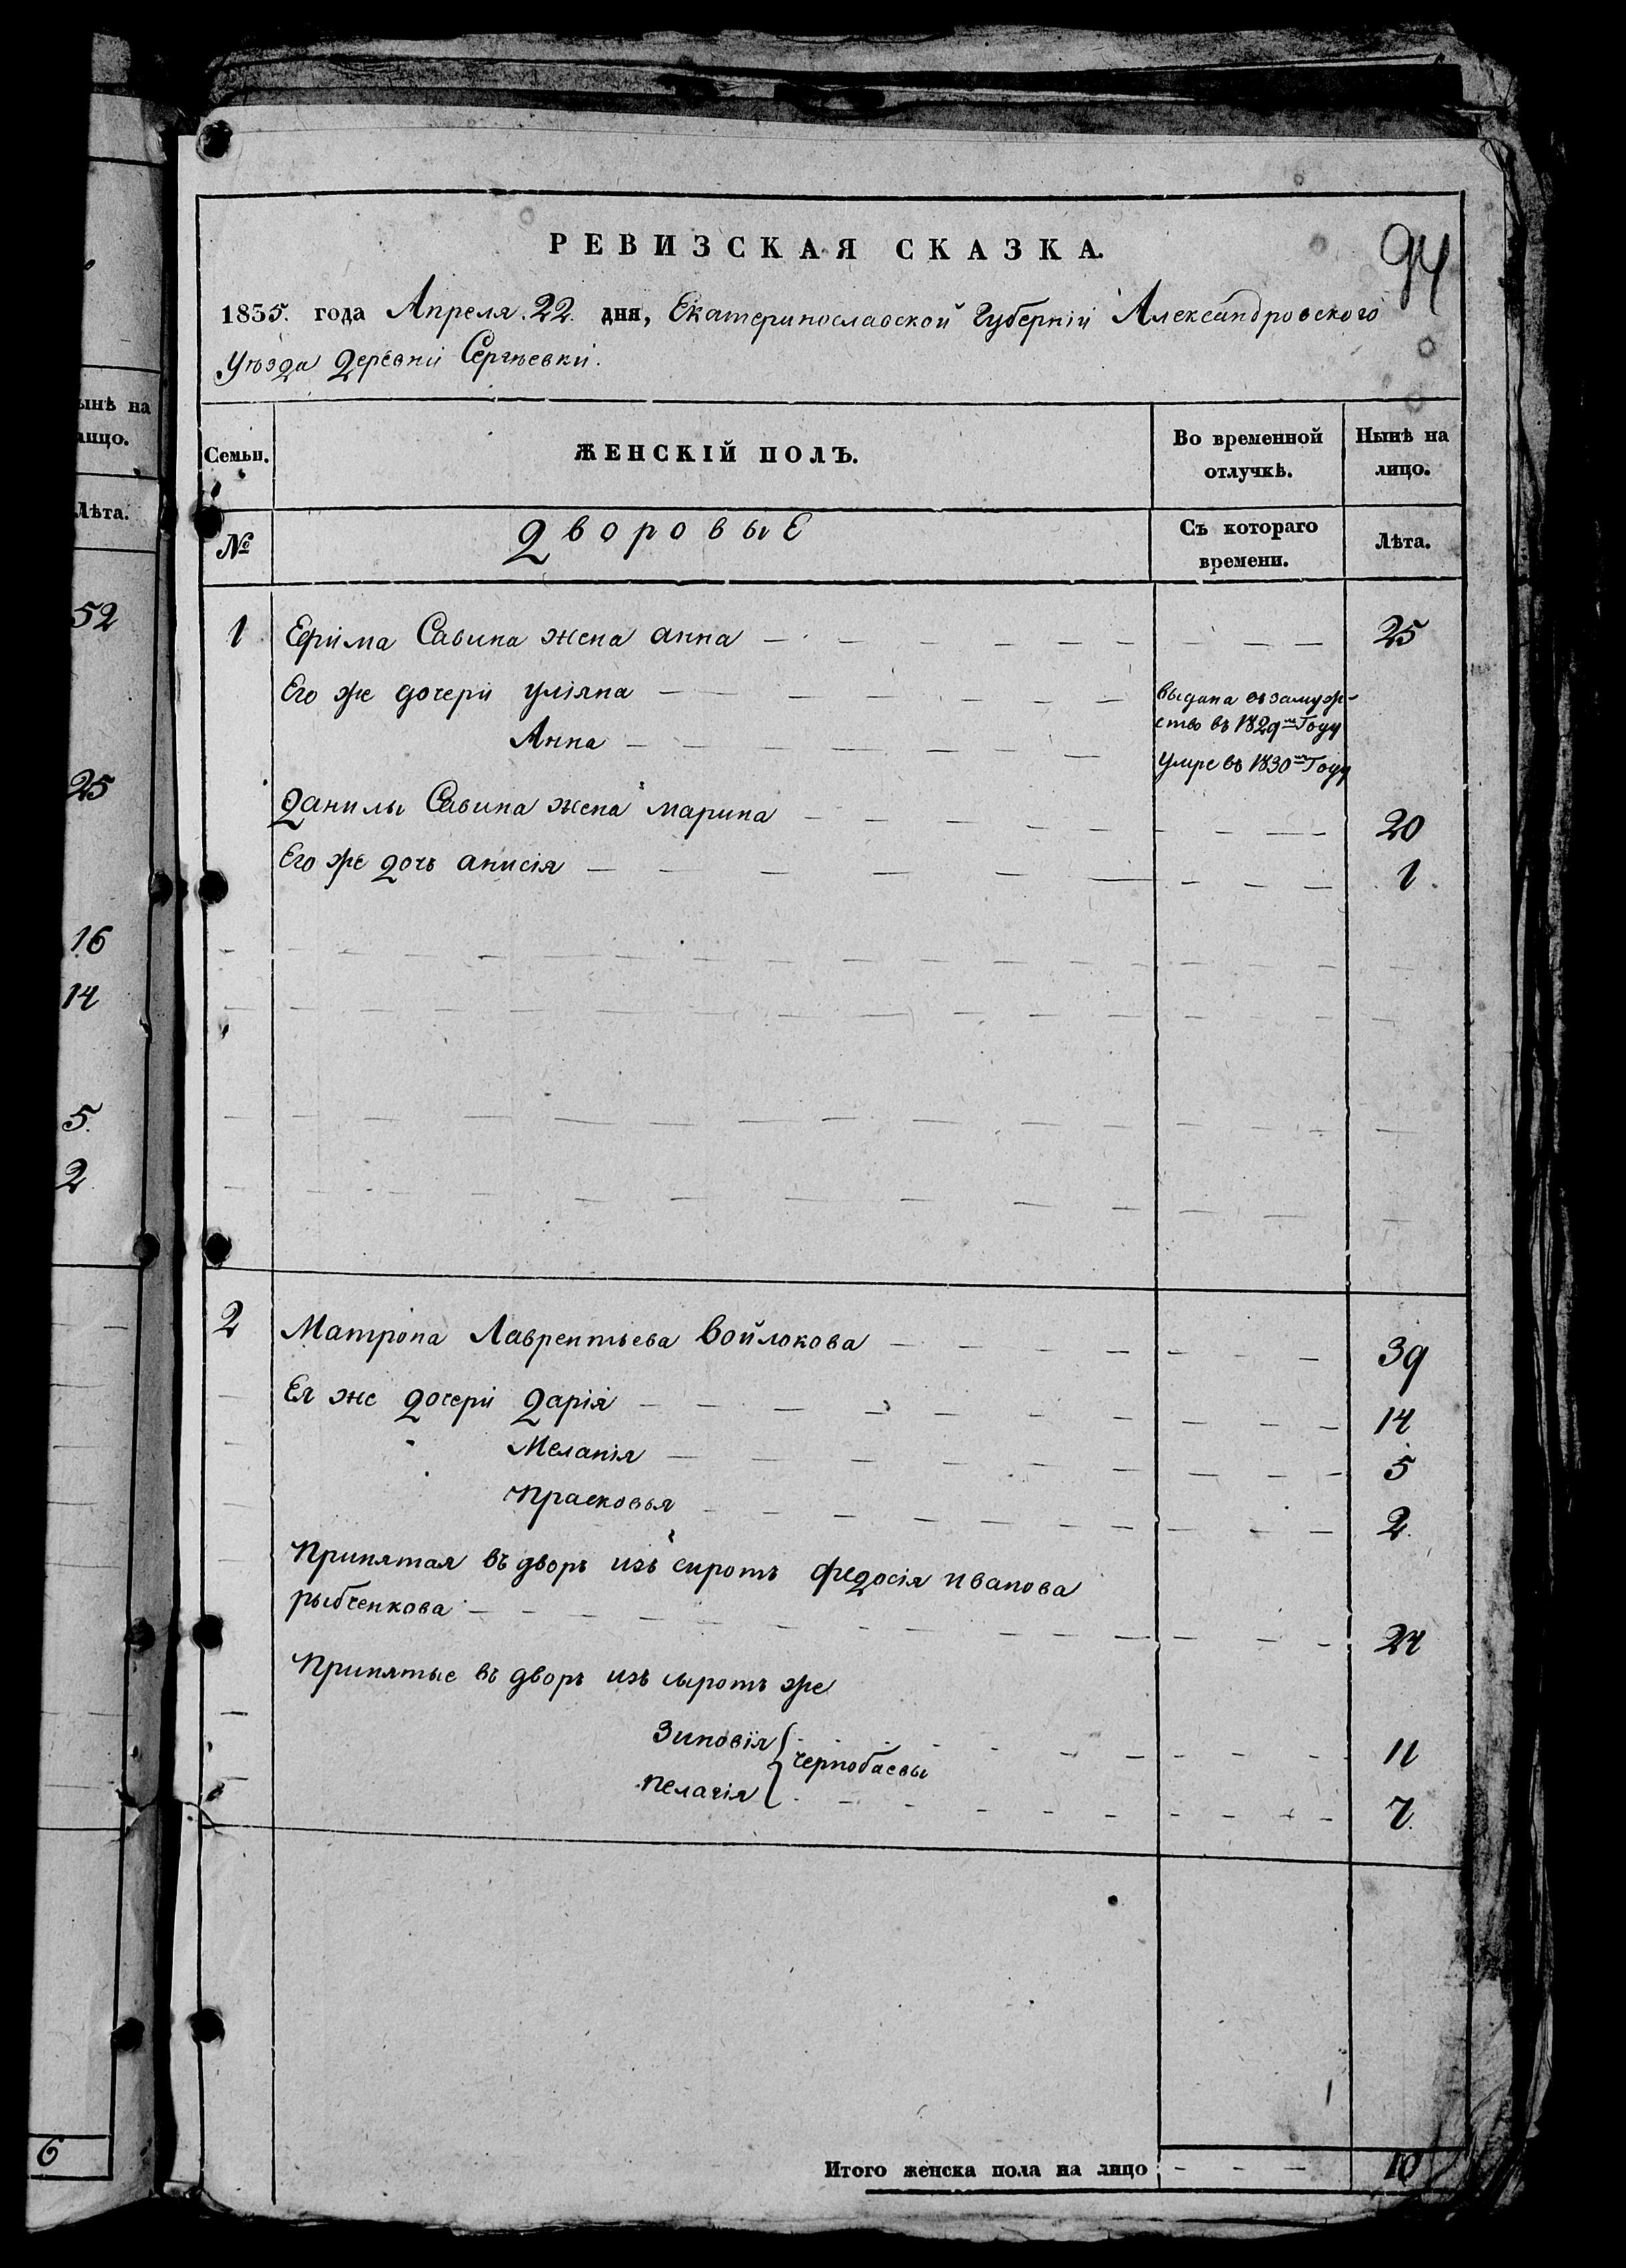 ынѣ на
лицо.
Лѣта.
52
25
16
14
5.
2
6
94
РЕВИЗСКАЯ СКАЗКА.
1835. года Апреля. 22. дня, Екатеринославской Губерніи Александровского
Уѣзда Деревни Сергѣевки.
Семьи.
ЖЕНСКІЙ ПОЛЪ.
Во временной отлучкѣ.
Нынѣ на лицо.
№
Дворовые
Съ котораго времени.
Лѣта.
1 Ефима Савина жена анна 25
Его же дочери уліяна выдана въ замуж-
ство въ 1829м Году
Анна умре въ 1830м Году
Данилы Савина жена марина 20
Его же дочь анисія 1.
2 Матрона Лаврентьева Войлокова 39
Ея же дочери Дарія 14
Меланія 5
Прасковья 2.
Принятая въ дворъ изъ сиротъ федосія иванова
рыбченкова 24
Принятые въ дворъ изъ сиротъ же
Зиновія 11
чернобаевы
пелагія 7.
Итого женска пола на лицо 10